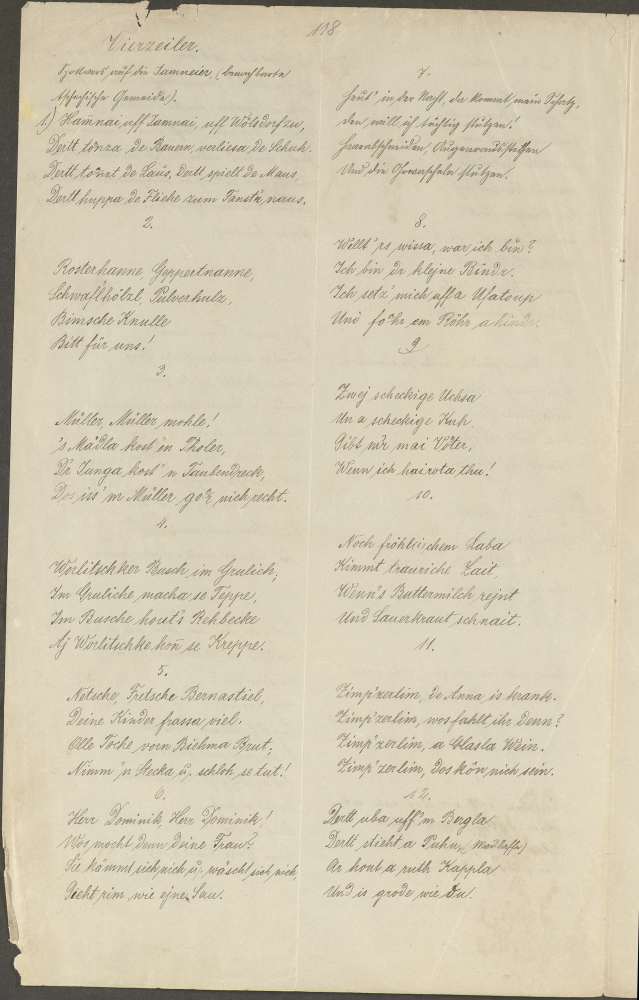 118
Vierzeiler.
Spottvers auf die Jamneier, (benachbarte
tschechische Gemeinde).
1) Hamnai uff Jamnai, uff Wölsdorf zu,
Dertt tonza de Bauern, verliesa de Schuh.
Dertt tonzt de Laus, dertt spielt de Maus,
Dertt huppa de Fliehe zum Fanstr naus.
2.
Rosterhanne Geppertnanne,
Schwaflhölzl, Pulverhulz,
Bimsche Knulle
Bitt für uns!
3.
Müller, Müller mohle!
's Mädla kost 'n Tholer,
Dr Junga kost 'n Taubendreck,
Dos iss' m Müller gor nich recht.
4.
Worlitschker Busch im Grulich,
Im Gruliche macha se Teppe,
Im Busche hout's Rehbecke
Aj Worlitschke hon se Kreppe.
5.
Netsche, Fretsche Bernastiel,
Deine Kinder frassa viel.
Olle Toche vorn Biehma Brut,
Nimm 'n Stecka u. schloh se tut!
6.
Herr Dominik, Herr Dominik!
Wos mocht denn deine Frau?
Sie kömmt sich nich u. wäscht sich nich,
Sieht rim wie ejne Sau.
7.
Heut' in der Nacht, da kommt mein Schatz,
den will ich tüchtig stutzen!
Herrabschneiden, Augenausstechen
Und die Ohrwascheln stutzen.
8.
Wellt' rs wissa, war ich bin?
Ich bin dr klejne Binde.
Ich setz' mich uff a Ufatoup
Und fohr em Röhr a hinde.
9.
Zwej scheckige Uchsa
Un a scheckige Kuh,
Gibt mr mai Voter,
Wenn ich hairota thu!
10.
Noch fröhlichem Laba
Kimmt trauriche Lait,
Wenn's Buttermilch rejnt
Und Sauerkraut schnait.
11.
Zimp'zerlim, de Anna is krank.
Zimp'zerlim, wos fahlt ihr denn?
Zimp'zerlim, a Glasla Wein.
Zimp'zerlim, dos kon nich sein.
12.
Dertt uba uff'm Bergla
Dertt stieht a
Ar hout a ruth Kappla
Und is grode wie du.